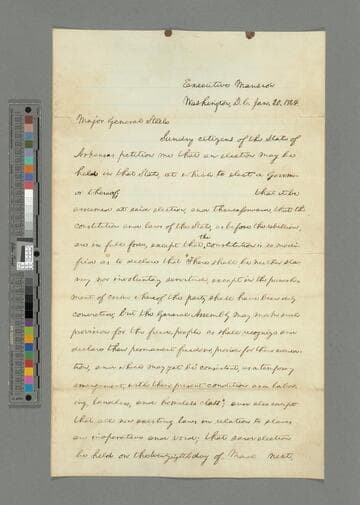 Executive Mansion
Washington, D.C. Jan. 20, 1864.
Major General Steele
Sundry citizens of the State of
Arkansas petition me that an election may be
held in that State, at which to elect a Govern-
or thereof, that it be
assumed at said election, and thenceforward, that the
constitution and laws of the State, as before the rebellion,
are in full force, except that the constitution is so modi-
fied as to declare that "There shall be neither sla-
very nor involuntary servitude, except in the punish-
ment of crime whereof the party shall have been duly
convicted; but the General Assembly may make such
provision for the freed people as shall recognize and
declare their permanent freedom, provide for their educa-
tion, and which may yet be consistent, as a temporary
arrangement, with their present condition as a labor-
ing, landless, and homeless class"; and also except
that all now existing laws in relation to slaves
are inoperative and void; that said election
be held on the twentyeighth day of March next,